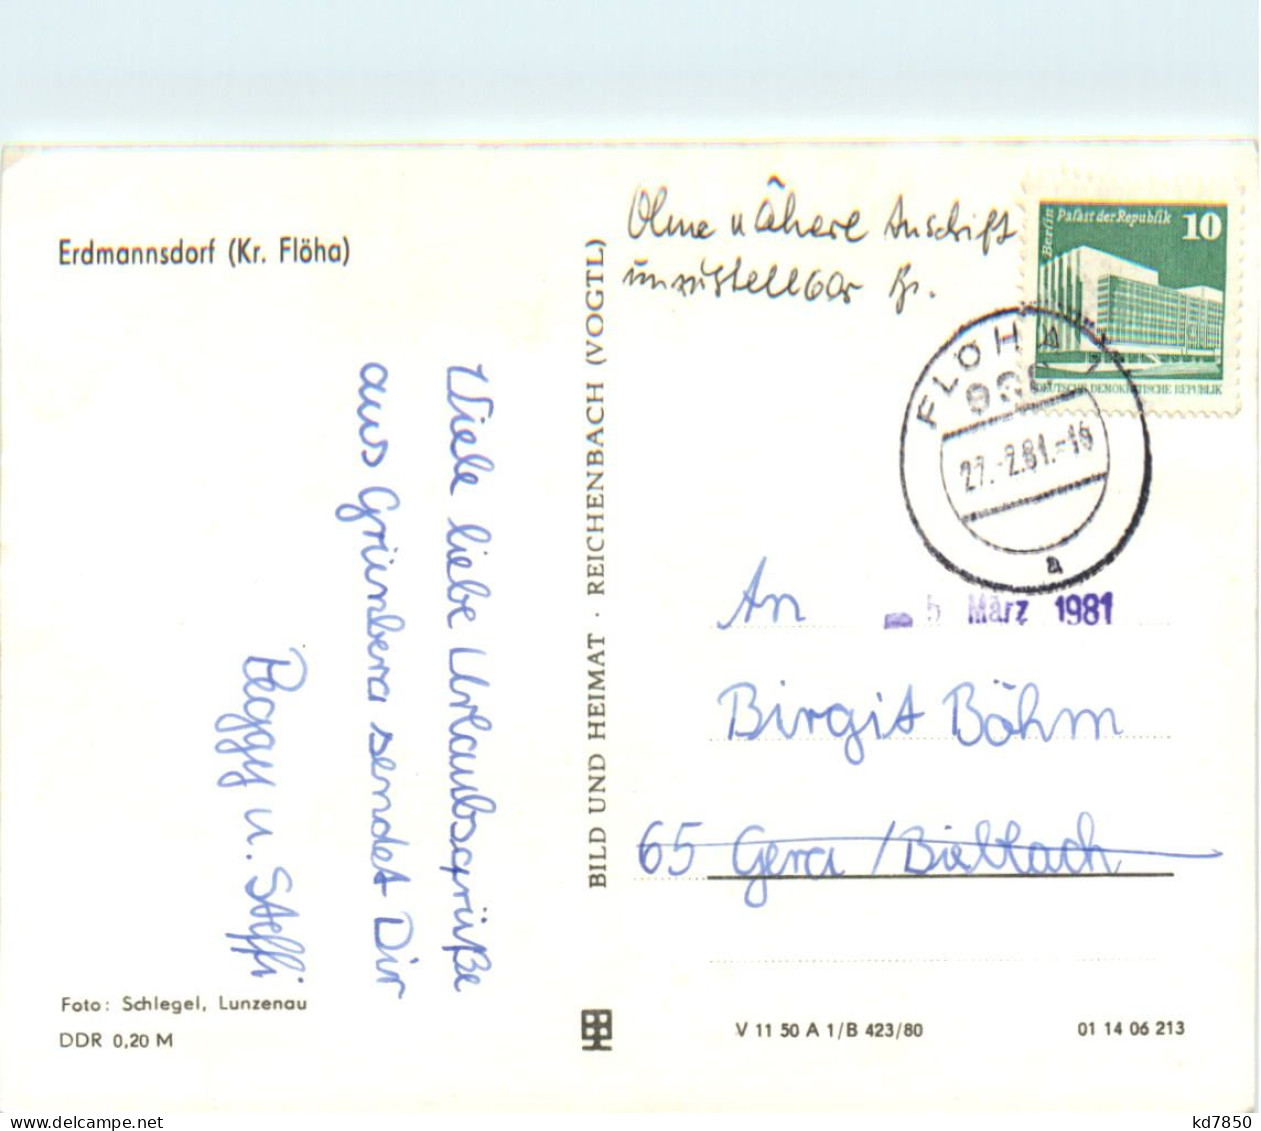 Erdmannsdorf (Kr. Flöha)
Viele liebe Urlaubsgrüße
aus Grünberg sendet Dir
Peggy u. Steffi
Foto: Schlegel, Lunzenau
DDR 0,20 M
BILD UND HEIMAT · REICHENBACH (VOGTL)
Ohne nähere Anschrift
unzustellbar
Berlin
Palast der Republik
10
DEUTSCHE DEMOKRATISCHE REPUBLIK
FLÖHA 1
27.-2.81.-16
a
5. März 1981
An
Birgit Böhm
65 Gera / Bieblach
V 11 50 A 1/B 423/80
01 14 06 213
www.delcampe.net
kd7850